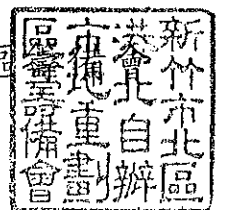 新竹市北區
港北自辦
市地重劃
區籌備會